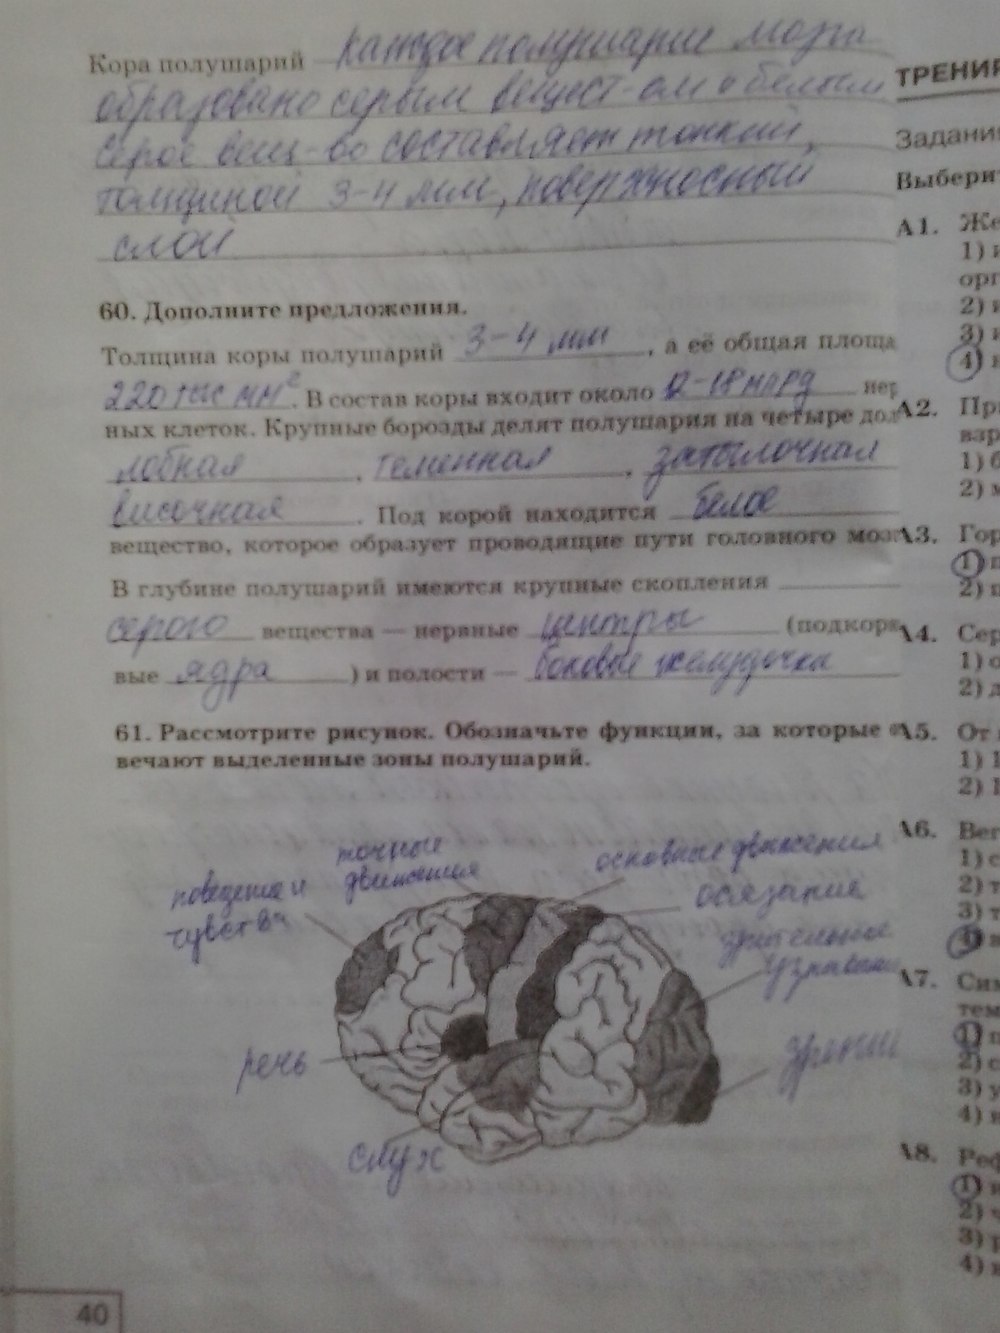 Кора полушарий — каждое полушарие мозга
образовано серым вещест-ом и белым
серое вещ-во составляет тонкий,
толщиной 3-4 мм, поверхносный
слой
60. Дополните предложения.
Толщина коры полушарий 3-4 мм, а её общая площа
220 тыс мм². В состав коры входит около 12-18 млрд нер
ных клеток. Крупные борозды делят полушария на четыре дол
лобная, теменная, затылочная
височная. Под корой находится белое
вещество, которое образует проводящие пути головного мозг
В глубине полушарий имеются крупные скопления
серого вещества — нервные центры (подкорк
вые ядра) и полости — боковые желудочки
61. Рассмотрите рисунок. Обозначьте функции, за которые о
вечают выделенные зоны полушарий.
точные движения
поведение и чувства
основные движения
осязание
зрительное
зрение
речь
слух
40
ТРЕНИР
Задани
Выберит
А1. Же
1) и
орг
2)
3)
4)
А2. Пр
взр
1) б
2)
А3. Гор
1) п
2)
А4. Сер
1) о
2) д
А5. От
1) 1
2) 1
А6. Вег
1) с
2) т
3) т
4)
А7. Сим
тем
1) п
2) с
3) у
4)
А8. Реф
1)
2) ч
3) р
4)